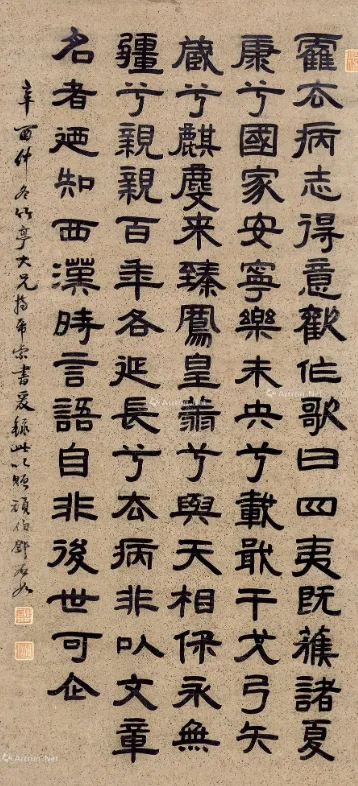 霍去病志得意歡作歌曰四夷既獲諸夏
康兮國家安寧樂未央兮載戢干戈弓矢
藏兮麒麐来臻鳳皇翔兮與天相保永無
疆兮親親百年各延長兮去病非以文章
名者迺知西漢時言語自非後世可企
辛酉什冬竹亭大兄持帋索書爰錄此以頌 頑伯鄧石如
Artron.Net
Artron.Net
Artron.Net